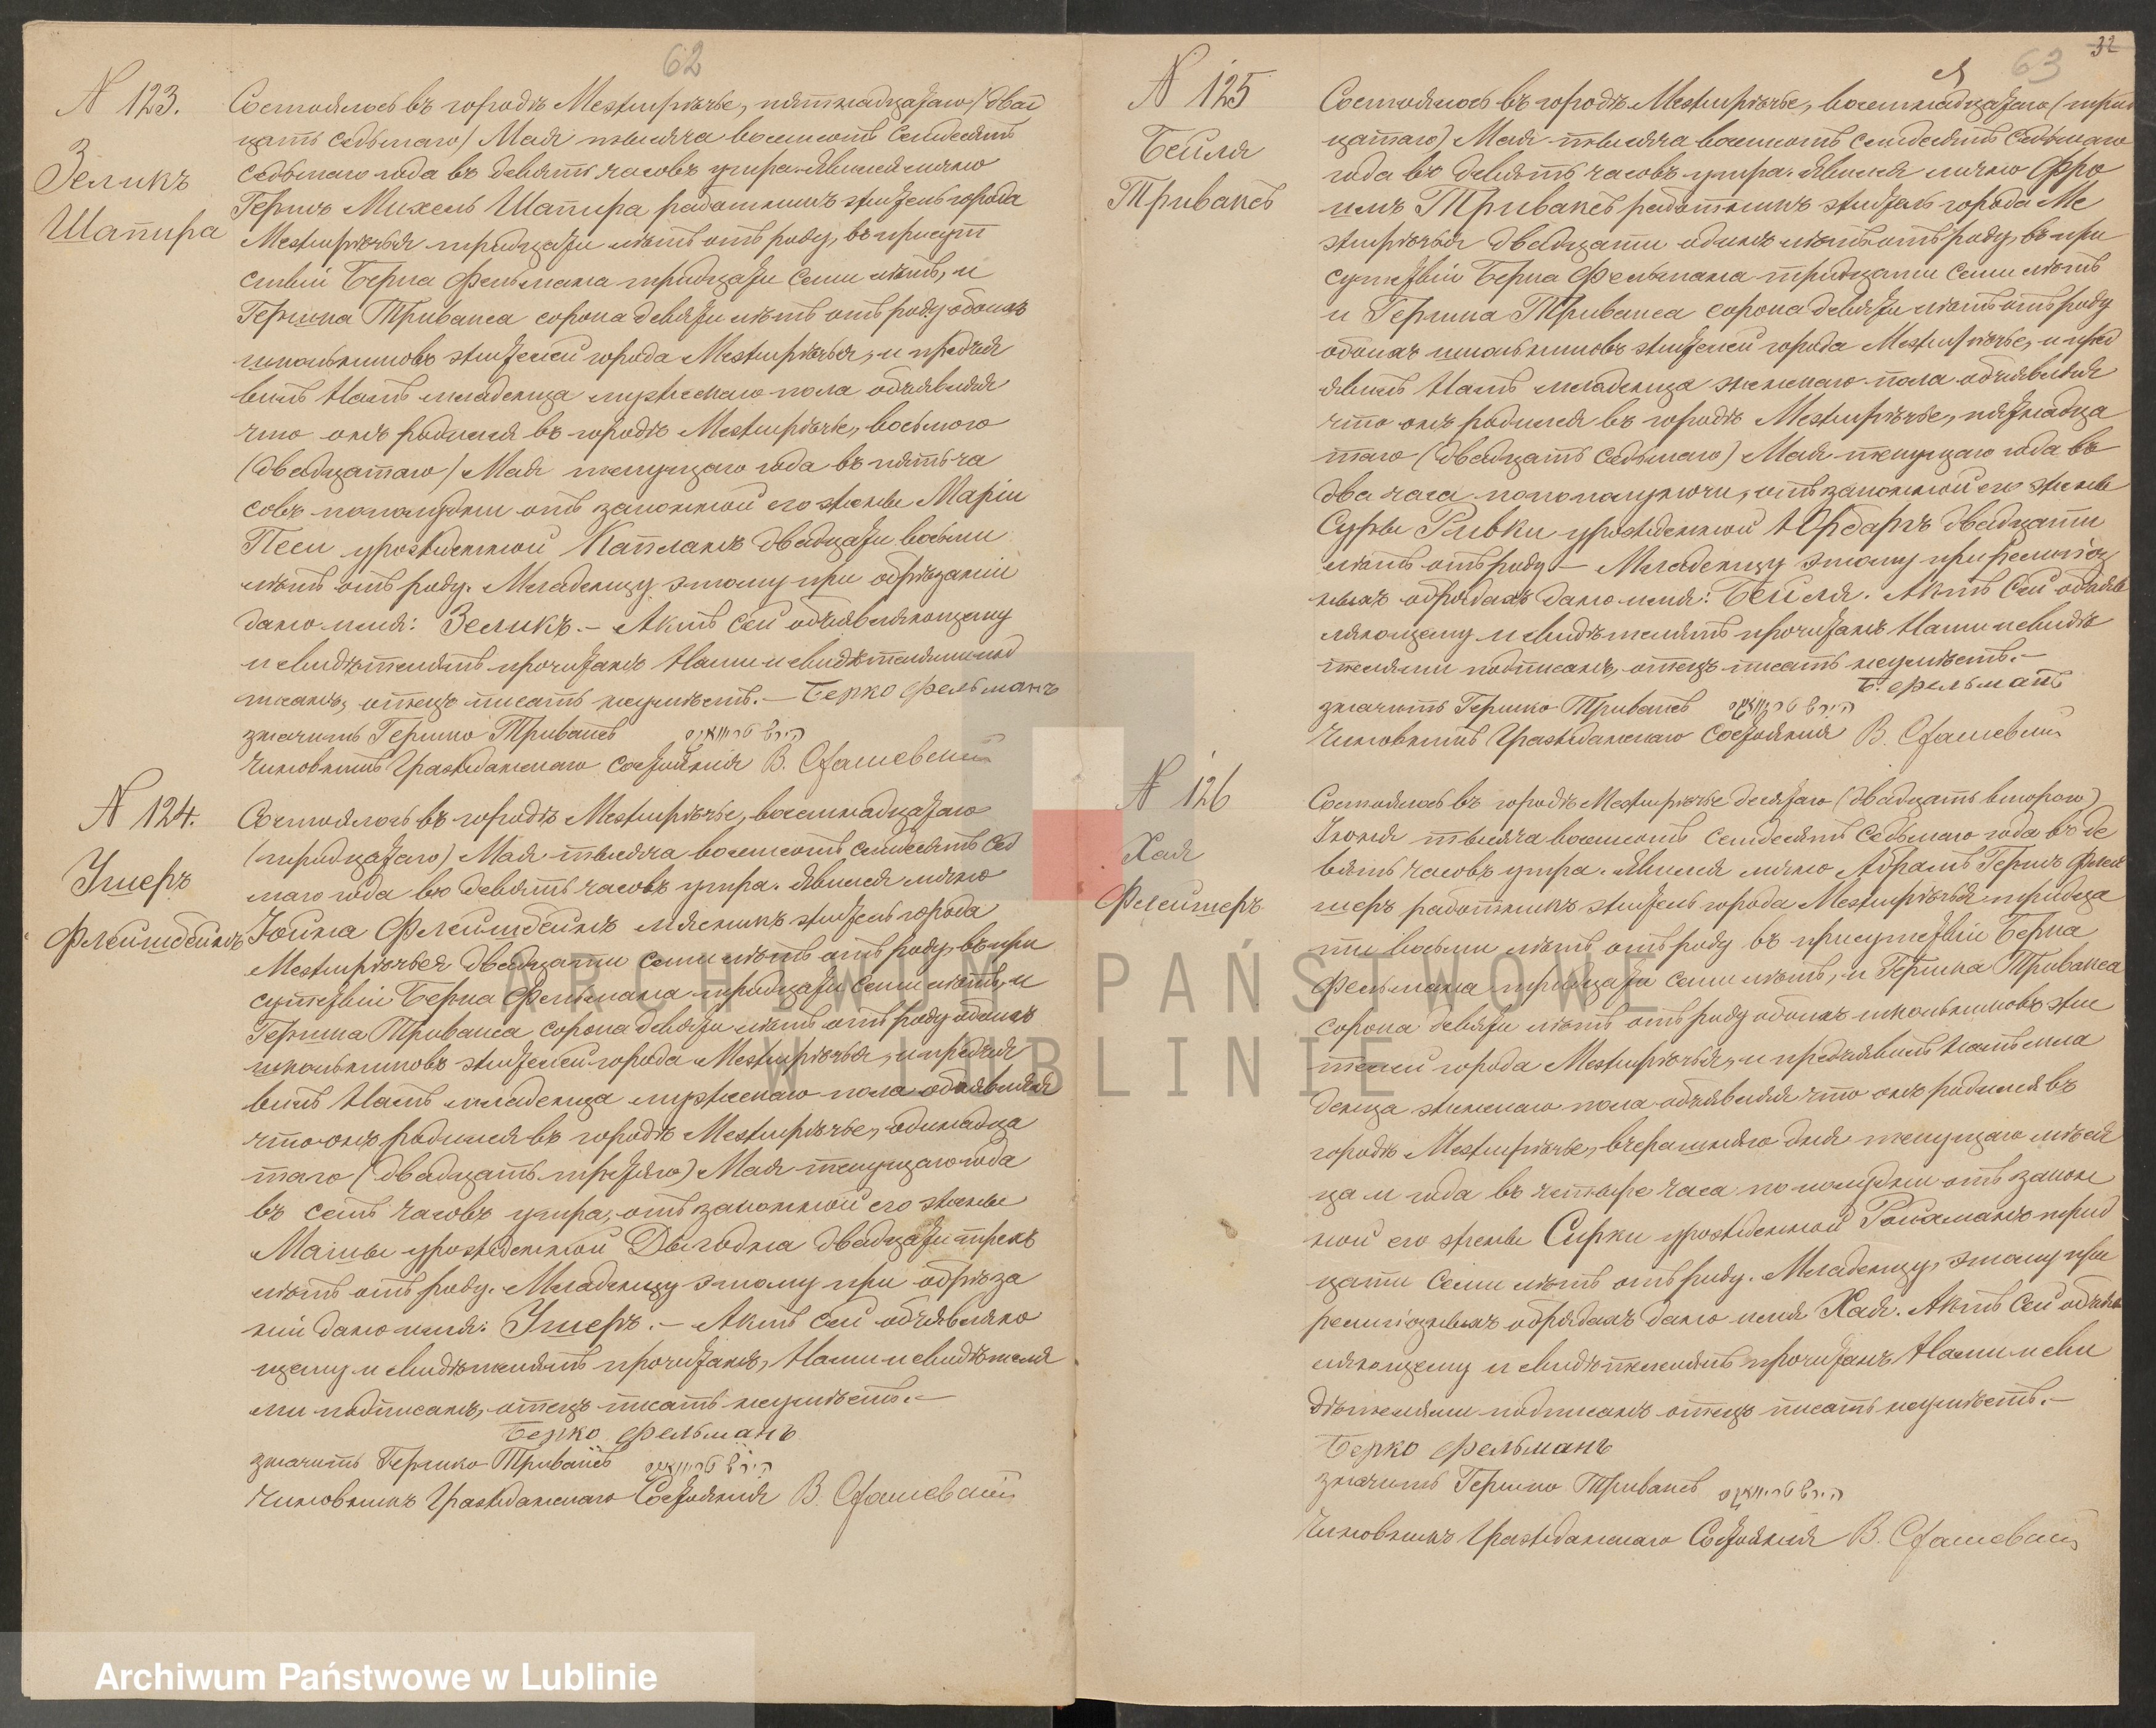 62
N 123.
Зеликъ
Шапира
Состоялось въ городѣ Межирѣчье, пятнадцатаго (двад
цать седьмаго) Мая тысяча восемьсотъ семдесятъ
седьмаго года въ девять часовъ утра. Явился лично
Гершъ Михель Шапира работникъ житель города
Межирѣчья тридцати лѣтъ отъ роду, въ присут
ствіи Берка Фельмана тридцати семи лѣтъ, и
Гершка Триванса сорока девяти лѣтъ отъ роду обоихъ
школьниковъ жителей города Межирѣчья, и предъя
вилъ Намъ младенца мужескаго пола объявляя
что онъ родился въ городѣ Межирѣчье, восьмого
(двадцатаго) Мая текущаго года въ пять ча
совъ пополудни отъ законной его жены Маріи
Песи урожденной Капланъ двадцати восьми
лѣтъ отъ роду. Младенцу этому при обрѣзаніи
дано имя: Зеликъ. — Актъ сей объявляющему
и свидѣтелямъ прочитанъ Нами и свидѣтелями под
писанъ, отецъ писать неумѣетъ. — Берко Фельманъ
значитъ Гершко Тривансъ הירש טריוואקס
Чиновникъ Гражданскаго Состоянія В. Сташевскій
N 124.
Ушеръ
Флейшбейнъ
Состоялось въ городѣ Межирѣчье, восемнадцатаго
(тридцатаго) Мая тысяча восемьсотъ семдесятъ сед
маго года въ девять часовъ утра. Явился лично
Іойна Флейшбейнъ мясникъ житель города
Межирѣчья двадцати семи лѣтъ отъ роду, въ при
сутствіи Берка Фельмана тридцати семи лѣтъ, и
Гершка Триванса сорока девяти лѣтъ отъ роду обоихъ
школьниковъ жителей города Межирѣчья, и предъя
вилъ Намъ младенца мужескаго пола объявляя
что онъ родился въ городѣ Межирѣчье, одинадца
таго (двадцать третяго) Мая текущаго года
въ семь часовъ утра, отъ законной его жены
Машы урожденной Двегодна двадцати трехъ
лѣтъ отъ роду. Младенцу этому при обрѣза
ніи дано имя: Ушеръ. — Актъ сей объявляю
щему и свидѣтелямъ прочитанъ, Нами и свидѣтеля
ми подписанъ, отецъ писать неумѣетъ. —
Берко Фельманъ
значитъ Гершко Тривансъ הירש טריוואקס
Чиновникъ Гражданскаго Состоянія В. Сташевскій
63
32
N 125
Бейля
Тривансъ
Состоялось въ городѣ Межирѣчье, восемнадцатаго (трид
цатаго) Мая тысяча восемьсотъ семдесятъ седьмаго
года въ девять часовъ утра. Явился лично Фро
имъ Тривансъ работникъ житель города Ме
жирѣчья двадцати одинъ лѣтъ отъ роду, въ при
сутствіи Берка Фельмана тридцати семи лѣтъ
и Гершка Триванса сорока девяти лѣтъ отъ роду
обоихъ школьниковъ жителей города Межирѣчье, и предъ
явилъ Намъ младенца женскаго пола объявляя
что онъ родился въ городѣ Межирѣчье, пятнадца
таго (двадцать седьмаго) Мая текущаго года въ
два часа пополуночи, отъ законной его жены
Суры Ривки урожденной Юрбархъ двадцати
лѣтъ отъ роду — Младенцу этому при религіоз
ныхъ обрядахъ дано имя: Бейля. Актъ сей объяв
ляющему и свидѣтелямъ прочитанъ Нами и свидѣ
телями подписанъ, отецъ писать неумѣетъ. —
Б. Фельманъ
значитъ Гершко Тривансъ הירש טריוואקס
Чиновникъ Гражданскаго Состоянія В. Сташевскій
N 126
Хая
Флейшеръ
Состоялось въ городѣ Межирѣчье десятаго (двадцать второго)
Іюня тысяча восемьсотъ семдесятъ седьмаго года въ де
вять часовъ утра. Явился лично Абрамъ Гершъ Флей
шеръ работникъ житель города Межирѣчья тридца
ти восьми лѣтъ отъ роду въ присутствіи Берка
Фельмана тридцати семи лѣтъ, и Гершка Триванса
сорока девяти лѣтъ отъ роду обоихъ школьниковъ жи
телей города Межирѣчья, и предъявилъ Намъ мла
денца женскаго пола объявляя что онъ родился въ
городѣ Межирѣчье, вчерашняго дня текущаго мѣся
ца и года въ четыре часа по полудни отъ закон
ной его жены Сирки урожденной Ройсманъ трид
цати семи лѣтъ отъ роду. Младенцу этому при
религіозныхъ обрядахъ дано имя Хая. Актъ сей объяв
ляющему и свидѣтелямъ прочитанъ Нами и сви
дѣтелями подписанъ отецъ писать неумѣетъ. —
Берко Фельманъ
значитъ Гершко Тривансъ הירש טריוואקס
Чиновникъ Гражданскаго Состоянія В. Сташевскій
ARCHIWUM PAŃSTWOWE
W LUBLINIE
Archiwum Państwowe w Lublinie